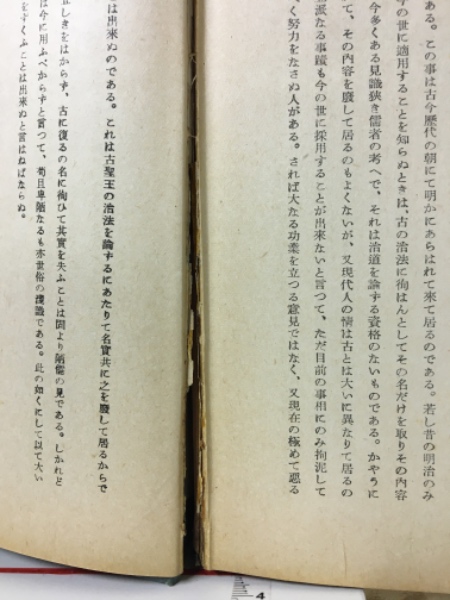 ある。この事は古今歴代の朝にて明かにあらはれて来て居るのである。若し昔の明治のみ
今の世に適用することを知らぬときは、古の治法に拘はんとしてその名だけを取りその内容
今多くある見識狭き儒者の考へで、それは治道を論ずる資格のないものである。かやうに
て、その内容を廢して居るのもよくないが、又現代人の情は古とは大いに異なりて居るの
派なる事蹟も今の世に採用することが出來ないと言つて、ただ目前の事相にのみ拘泥して
く努力をなさぬ人がある。されば大なる功業を立つる意見ではなく、又現在の極めて惡る
は出來ぬのである。これは古聖王の治法を論ずるにあたりて名實共に之を廢して居るからで
しきをはからず、古に復るの名に徇ひて其實を失ふことは固より陋儒の見である。しかれど
は今に用ふべからずと言つて、苟且卑陋なるも亦世俗の淺識である。此の如くにして以て大い
をすくふことは出來ぬと言はねばならぬ。
4